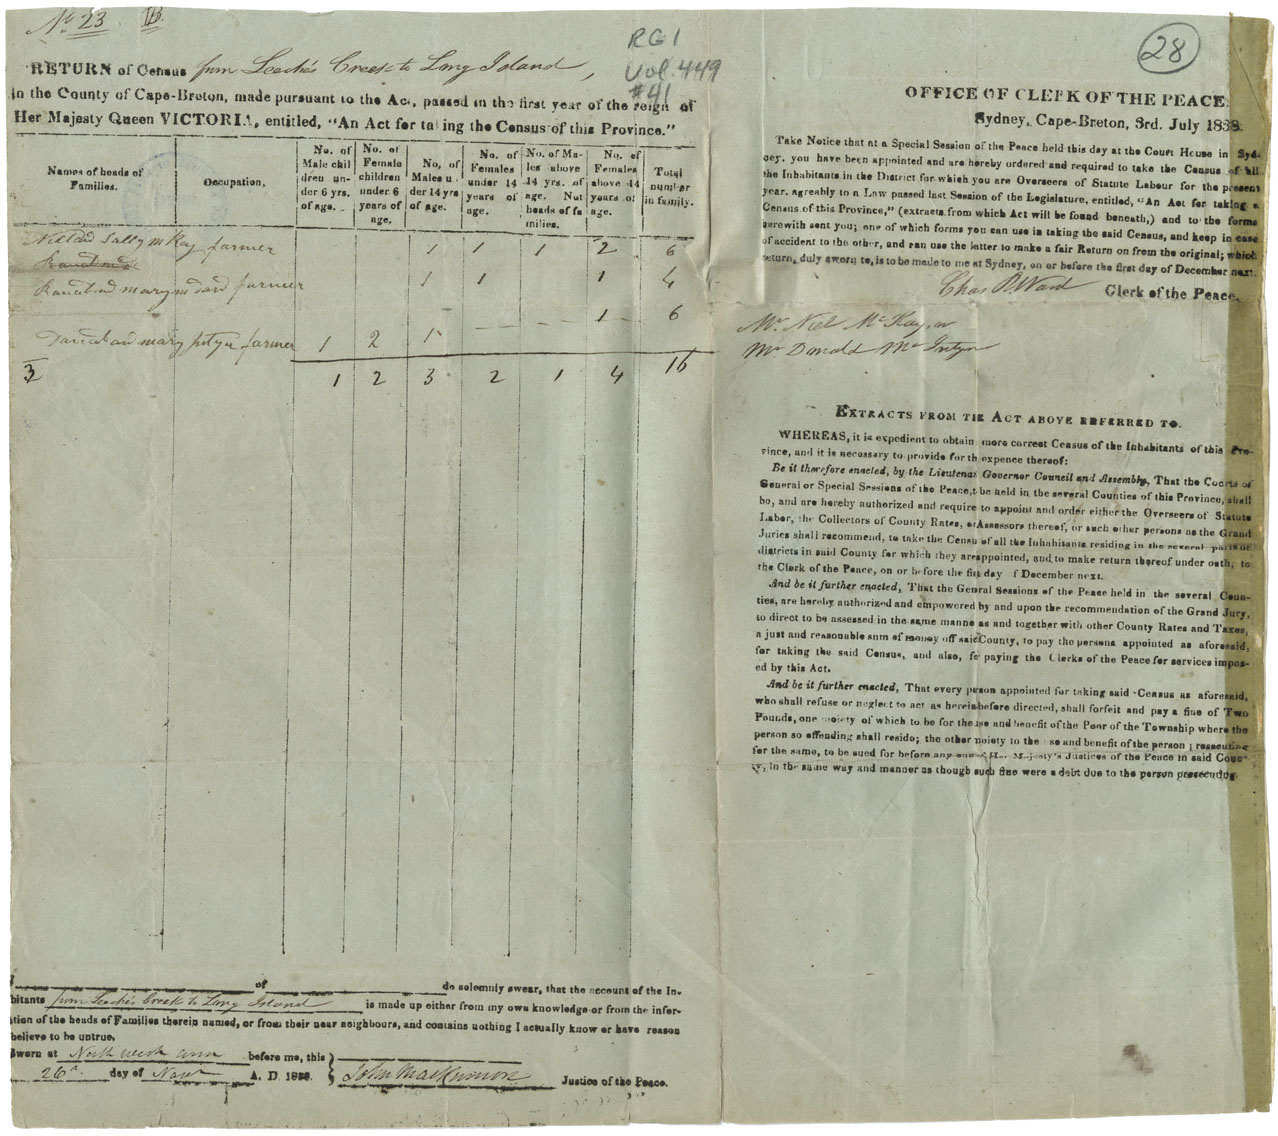 No 23 B.
RG 1
Vol. 449
#41
RETURN of Census from Leache's Creek to Long Island,
in the County of Cape-Breton, made pursuant to the Act, passed in the first year of the reign of
Her Majesty Queen VICTORIA, entitled, "An Act for taking the Census of this Province."
Names of heads of Families. | Occupation, | No. of Male children under 6 yrs. of age. | No. of Female children under 6 years of age. | No, of Males under 14 yrs of age. | No. of Females under 14 years of age. | No. of Males above 14 yrs. of age. Not heads of families. | No. of Females above 14 years of age. | Total number in family.
Niel and Sally mKay farmer 1 1 1 2 6
Ranald and mary farmer 1 1 1 4
1 6
and mary farmer 1 2 1
3 1 2 3 2 1 4 16
I of do solemnly swear, that the account of the In-
bitants from Leache's Creek to Long Island is made up either from my own knowledge or from the infor-
ation of the heads of Families therein named, or from their near neighbours, and contains nothing I actually know or have reason
believe to be untrue.
Sworn at North west arm before me, this
26th day of Novr A. D. 1838. John MacKinnon Justice of the Peace.
28
OFFICE OF CLERK OF THE PEACE.
Sydney, Cape-Breton, 3rd. July 1838.
Take Notice that at a Special Session of the Peace held this day at the Court House in Syd-
ney. you have been appointed and are hereby ordered and required to take the Census of all
the Inhabitants in the District for which you are Overseers of Statute Labour for the present
year, agreably to a Law passed last Session of the Legislature, entitled, "An Act for taking a
Census of this Province," (extracts from which Act will be found beneath,) and to the forms
herewith sent you; one of which forms you can use in taking the said Census, and keep in case
of accident to the other, and can use the latter to make a fair Return on from the original; which
return, duly sworn to, is to be made to me at Sydney, on or before the first day of December next.
Chas Ward Clerk of the Peace.
Mr. Niel McKay
Mr Donald McIntyre
EXTRACTS FROM THE ACT ABOVE REFERRED TO.
WHEREAS, it is expedient to obtain more correct Census of the Inhabitants of this Pro-
vince, and it is necessary to provide for th expence thereof:
Be it therefore enacted, by the Lieutenant Governor Council and Assembly, That the Courts of
General or Special Sessions of the Peace, t be held in the several Counties of this Province, shall
be, and are hereby authorized and require to appoint and order either the Overseers of Statute
Labor, the Collectors of County Rates, or Assessors thereof, or such other persons as the Grand
Juries shall recommend, to take the Census of all the Inhabitants residing in the several parts or
districts in said County for which they are appointed, and to make return thereof under oath, to
the Clerk of the Peace, on or before the first day of December next.
And be it further enacted, That the General Sessions of the Peace held in the several Coun-
ties, are hereby authorized and empowered by and upon the recommendation of the Grand Jury,
to direct to be assessed in the same manner as and together with other County Rates and Taxes,
a just and reasonable sum of money off said County, to pay the persons appointed as aforesaid,
for taking the said Census, and also, for paying the Clerks of the Peace for services impos-
ed by this Act.
And be it further enacted, That every person appointed for taking said Census as aforesaid,
who shall refuse or neglect to act as herein before directed, shall forfeit and pay a fine of Two
Pounds, one moiety of which to be for the use and benefit of the Poor of the Township where the
person so offending shall reside; the other moiety to the use and benefit of the person prosecuting
for the same, to be sued for before any one of Her Majesty's Justices of the Peace in said Coun-
ty, in the same way and manner as though such fine were a debt due to the person prosecuting